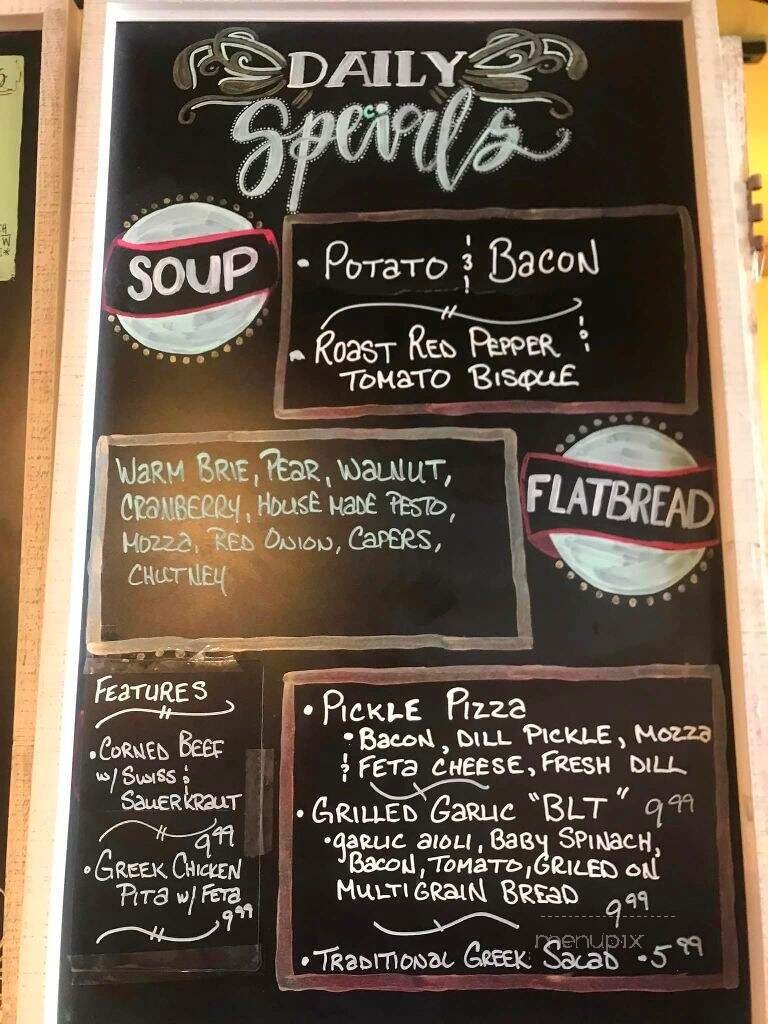 DAILY
Specials
SOUP
• POTATO & BACON
• ROAST RED PEPPER &
TOMATO BISQUE
WARM BRIE, PEAR, WALNUT,
CRANBERRY, HOUSE MADE PESTO,
MOZZA, RED ONION, CAPERS,
CHUTNEY
FLATBREAD
FEATURES
• CORNED BEEF
W/ SWISS &
SAUERKRAUT
9.99
• GREEK CHICKEN
PITA W/ FETA
9.99
• PICKLE PIZZA
• BACON, DILL PICKLE, MOZZA
& FETA CHEESE, FRESH DILL
• GRILLED GARLIC "BLT" 9.99
• GARLIC AIOLI, BABY SPINACH,
BACON, TOMATO, GRILED ON
MULTIGRAIN BREAD
9.99
menupix
• TRADITIONAL GREEK SALAD • 5.99